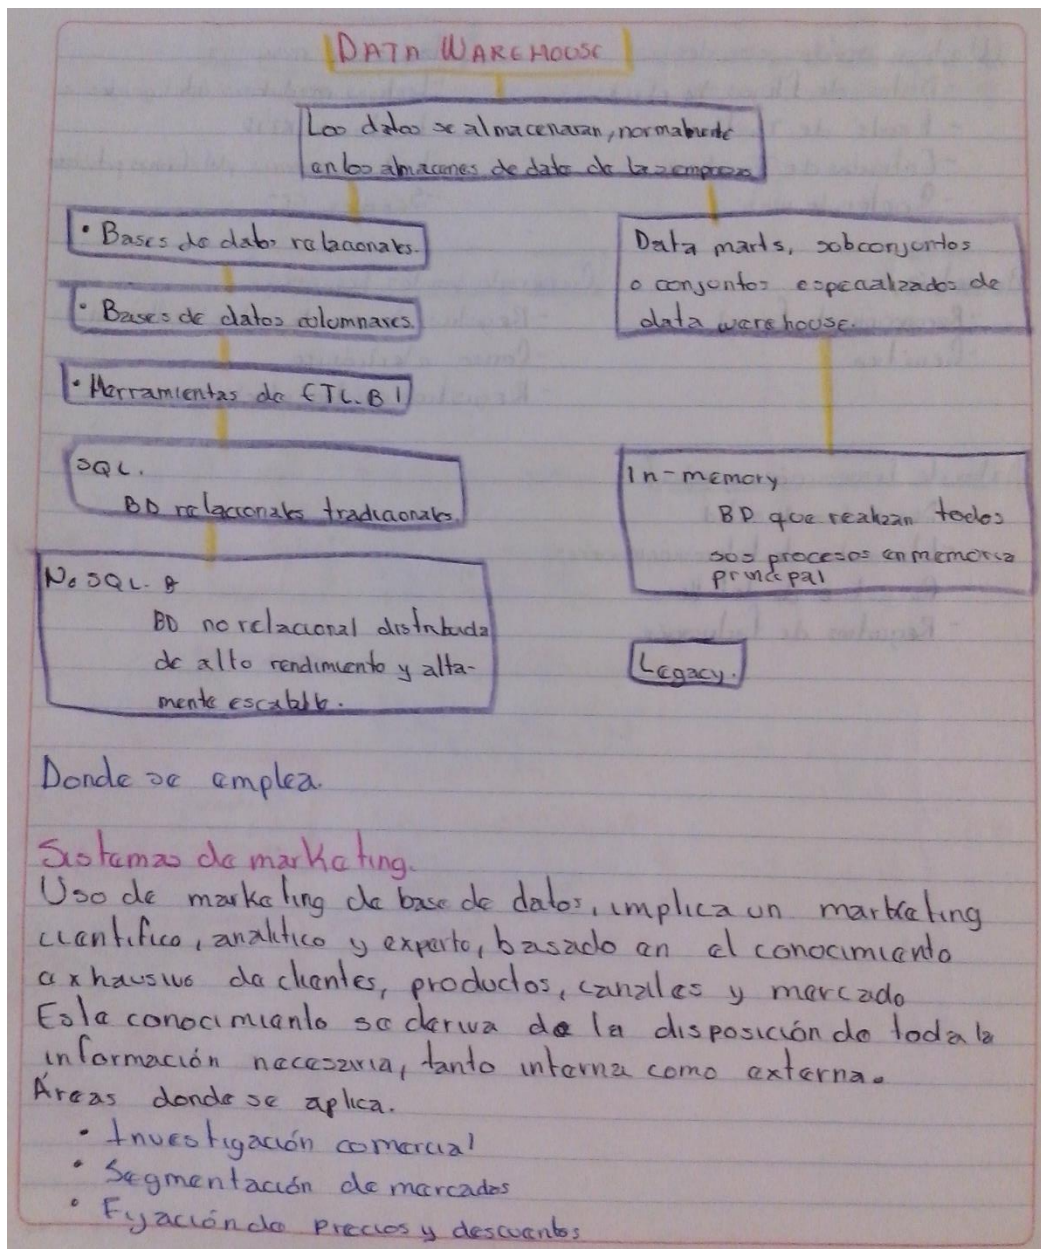 DATA WAREHOUSE
Los datos se almacenaran, normalmente
en los almacenes de datos de las empresas
• Bases de datos relacionales.
• Bases de datos columnares.
• Herramientas de ETL. BI
SQL.
BD relacionales tradicionales.
No SQL.
BD no relacional distribuida
de alto rendimiento y alta-
mente escalable.
Data marts, subconjuntos
o conjuntos especializados de
data warehouse.
In-memory
BD que realizan todos
sus procesos en memoria
principal
Legacy.
Donde se emplea.
Sistemas de marketing.
Uso de marketing de base de datos, implica un marketing
cientifico, analitico y experto, basado en el conocimiento
exhausivo de clientes, productos, canales y mercado
Este conocimiento se deriva de la disposición de toda la
información necesaria, tanto interna como externa.
Áreas donde se aplica.
• Investigación comercial
• Segmentación de mercados
• Fijación de precios y descuentos